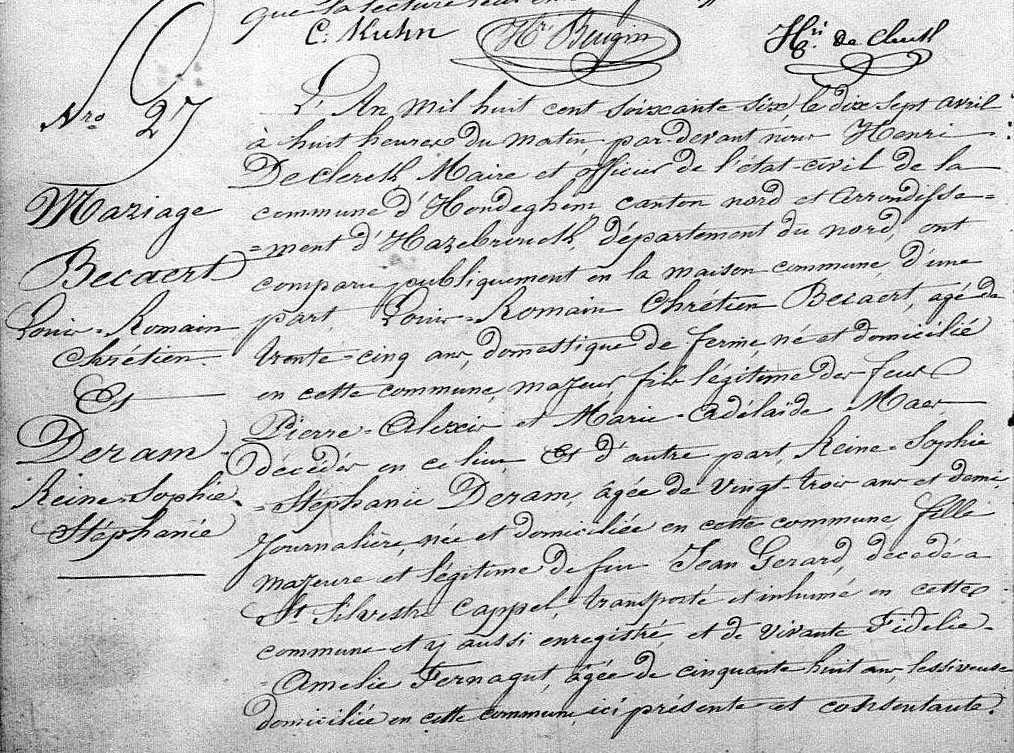 que la lecture leur en
C. Kuhn
Hri Beugin
Hri de Clerck
Nro 27
Mariage
Becaert
Louis-Romain
Chrétien
Et
Deram
Reine-Sophie
Stéphanie
L'An mil huit cent soixante six, le dix sept avril
à huit heures du matin, par-devant nous Henri
De Clerck Maire et officier de l'état-civil de la
commune d'Hondeghem canton nord et arrondisse=
=ment d'Hazebrouck, département du nord, ont
comparu publiquement en la maison commune, d'une
part, Louis-Romain Chrétien Becaert, agé de
trente-cinq ans, domestique de ferme, né et domicilié
en cette commune, majeur fils légitime des feus
Pierre-Alexis et Marie-Adélaïde Maes
décédés en ce lieu Et d'autre part, Reine-Sophie
-Stéphanie Deram, âgée de vingt-trois ans et demi
journalière, née et domiciliée en cette commune, fille
majeure et légitime de feu Jean Gerard, décédé à
St Silvestre Cappel, transporté et inhumé en cette
commune et y aussi enregistré, et de vivante Fidelie-
-Amelie Fernagut, âgée de cinquante huit ans, lessiveuse
domiciliée en cette commune ici présente et consentante.